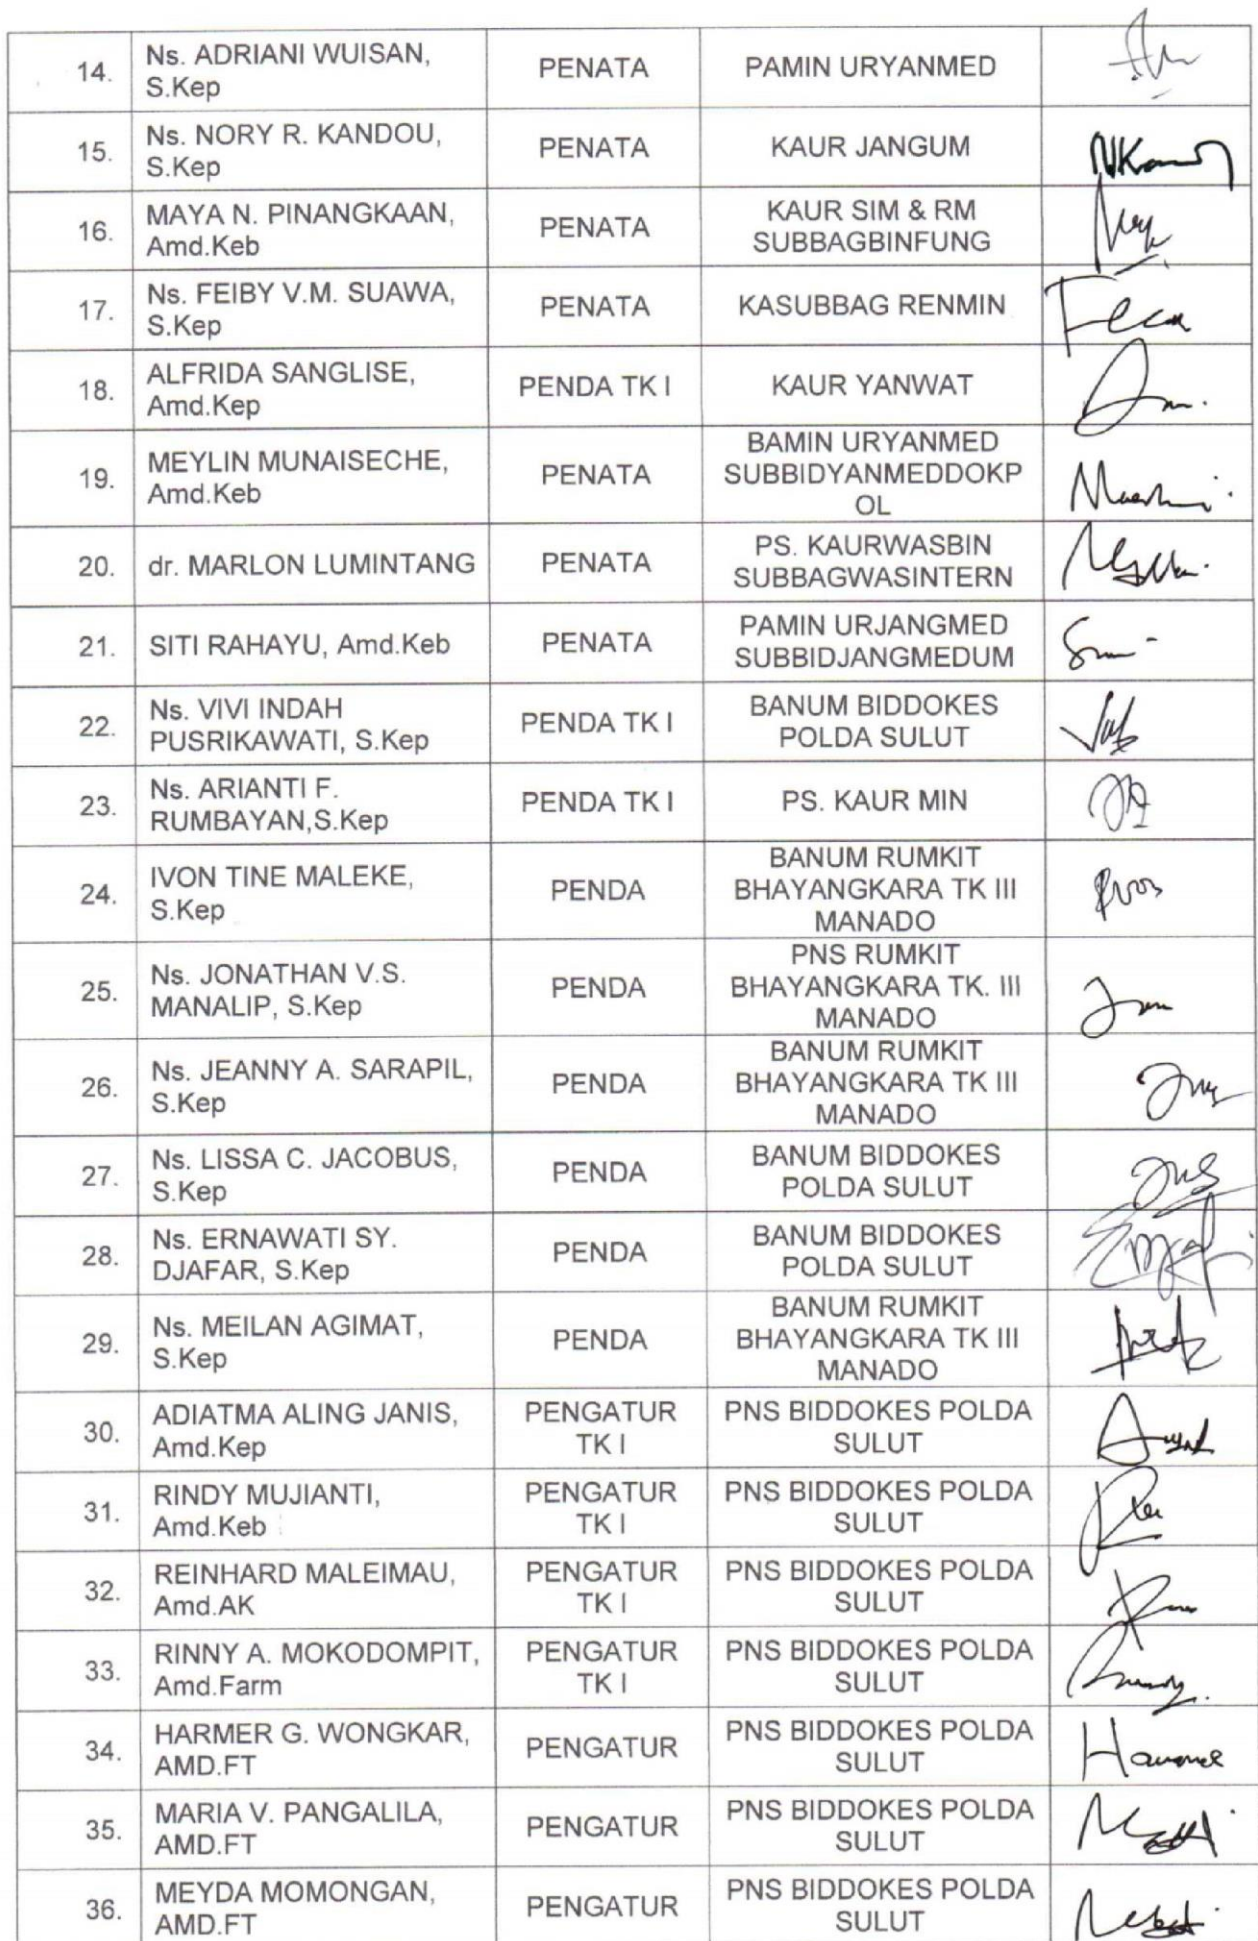 14.
Ns. ADRIANI WUISAN,
S.Kep
PENATA
PAMIN URYANMED
15.
Ns. NORY R. KANDOU,
S.Kep
PENATA
KAUR JANGUM
16.
MAYA N. PINANGKAAN,
Amd.Keb
PENATA
KAUR SIM & RM
SUBBAGBINFUNG
17.
Ns. FEIBY V.M. SUAWA,
S.Kep
PENATA
KASUBBAG RENMIN
18.
ALFRIDA SANGLISE,
Amd.Kep
PENDA TK I
KAUR YANWAT
19.
MEYLIN MUNAISECHE,
Amd.Keb
PENATA
BAMIN URYANMED
SUBBIDYANMEDDOKP
OL
20.
dr. MARLON LUMINTANG
PENATA
PS. KAURWASBIN
SUBBAGWASINTERN
21.
SITI RAHAYU, Amd.Keb
PENATA
PAMIN URJANGMED
SUBBIDJANGMEDUM
22.
Ns. VIVI INDAH
PUSRIKAWATI, S.Kep
PENDA TK I
BANUM BIDDOKES
POLDA SULUT
23.
Ns. ARIANTI F.
RUMBAYAN,S.Kep
PENDA TK I
PS. KAUR MIN
24.
IVON TINE MALEKE,
S.Kep
PENDA
BANUM RUMKIT
BHAYANGKARA TK III
MANADO
25.
Ns. JONATHAN V.S.
MANALIP, S.Kep
PENDA
PNS RUMKIT
BHAYANGKARA TK. III
MANADO
26.
Ns. JEANNY A. SARAPIL,
S.Kep
PENDA
BANUM RUMKIT
BHAYANGKARA TK III
MANADO
27.
Ns. LISSA C. JACOBUS,
S.Kep
PENDA
BANUM BIDDOKES
POLDA SULUT
28.
Ns. ERNAWATI SY.
DJAFAR, S.Kep
PENDA
BANUM BIDDOKES
POLDA SULUT
29.
Ns. MEILAN AGIMAT,
S.Kep
PENDA
BANUM RUMKIT
BHAYANGKARA TK III
MANADO
30.
ADIATMA ALING JANIS,
Amd.Kep
PENGATUR
TK I
PNS BIDDOKES POLDA
SULUT
31.
RINDY MUJIANTI,
Amd.Keb
PENGATUR
TK I
PNS BIDDOKES POLDA
SULUT
32.
REINHARD MALEIMAU,
Amd.AK
PENGATUR
TK I
PNS BIDDOKES POLDA
SULUT
33.
RINNY A. MOKODOMPIT,
Amd.Farm
PENGATUR
TK I
PNS BIDDOKES POLDA
SULUT
34.
HARMER G. WONGKAR,
AMD.FT
PENGATUR
PNS BIDDOKES POLDA
SULUT
35.
MARIA V. PANGALILA,
AMD.FT
PENGATUR
PNS BIDDOKES POLDA
SULUT
36.
MEYDA MOMONGAN,
AMD.FT
PENGATUR
PNS BIDDOKES POLDA
SULUT